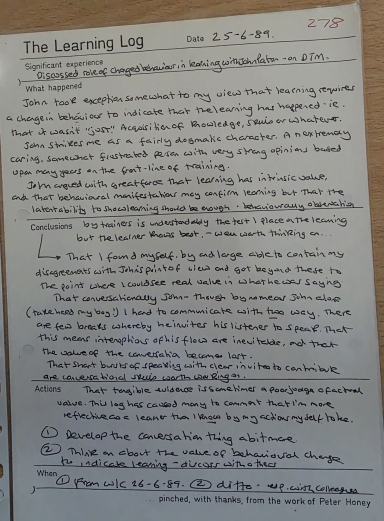 278
The Learning Log Date 25-6-89.
Significant experience
Discussed role of changed behaviour in learning with John Paton - on DTM.
What happened
John took exception somewhat to my view that learning requires
a change in behaviour to indicate that the learning has happened - ie.
that it wasn't "just" Acquisition of Knowledge, skills or whatever.
John strikes me as a fairly dogmatic character. A extremely
caring, somewhat frustrated person with very strong opinions based
upon many years on the front-line of training.
John argued with great force that learning has intrinsic value,
and that behavioural manifestations may confirm learning but that the
latent ability to show learning should be enough. - behaviourally observation
Conclusions by trainers is understandably the test I place on the learning
but the learner knows best. - well worth thinking on...
That I found myself, by and large able to contain my
disagreements with John's point of view and got beyond these to
the point where I could see real value in what he was saying
That conversationally John - though by no means John alone
(take heed my boy!) I hard to communicate with two way. There
are few breaks whereby he invites his listener to speak. That
this means interruptions of his flow are inevitable, and that
the value of the conversation becomes lost.
That short bursts of speaking with clear invites to contribute
are conversational skills worth working on.
Actions That tangible evidence is sometimes a poor judge of actual
value. This log has caused many to comment that I'm more
reflective as a learner than I know by my actions myself to be.
① Develop the conversation thing a bit more
② Think on about the value of behavioural change
to indicate learning - discuss with others
When
① From w/c 26-6-89. ② ditto - esp. with colleagues
... pinched, with thanks, from the work of Peter Honey